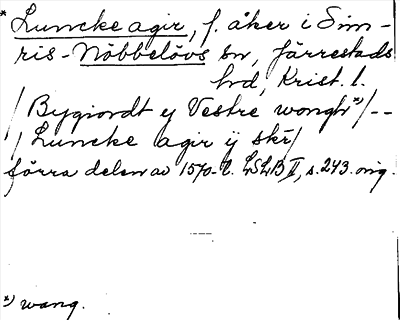 * Luncke agir, f. åker i Sim-
ris-Nöbbelövs sn, Järrestads
hd, Krist. l.
/ Bygiordt ej Vestre wongh *) / --
/ Luncke agir ij skr /
förra delen av 1570-t. LSLB II, s. 243. orig.
*) wang.